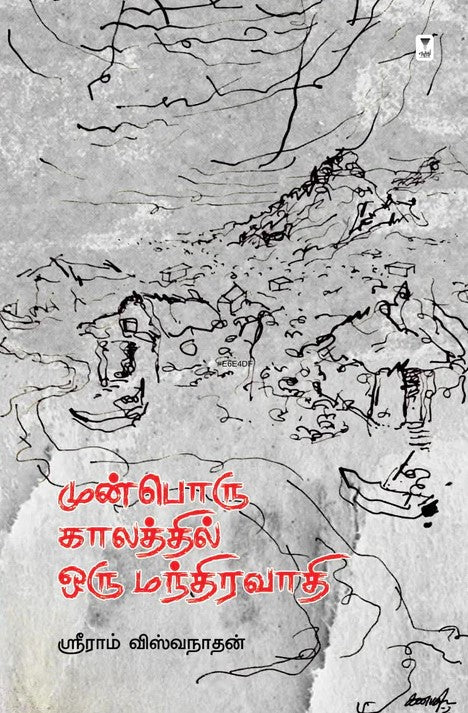 #E6E4DF
முன்பொரு
காலத்தில்
ஒரு மந்திரவாதி
ஸ்ரீராம் விஸ்வநாதன்